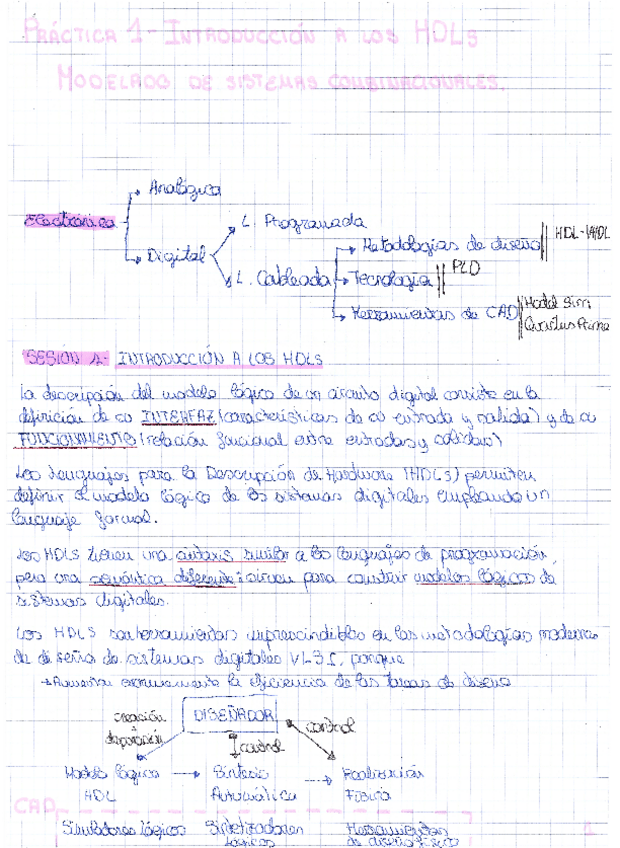 PRÁCTICA 1 - INTRODUCCIÓN A LOS HDLs
MODELADO DE SISTEMAS COMBINACIONALES.
Electrónica
Analógica
Digital
L. Programada
L. Cableada
Metodologías de diseño || HDL-VHDL
Tecnología || PLD
Herramientas de CAD || Model Sim
Quartus Prime
SESIÓN 1- INTRODUCCIÓN A LOS HDLS
La descripción del modelo lógico de un circuito digital consiste en la
definición de su INTERFAZ (características de su entrada y salida) y de su
FUNCIONAMIENTO (relación funcional entre entradas y salidas)
Los lenguajes para la Descripción de Hardware (HDLs) permiten
definir el modelo lógico de los sistemas digitales empleando un
lenguaje formal.
Los HDLs tienen una sintaxis similar a los lenguajes de programación,
pero una semántica diferente: sirven para construir modelos lógicos de
sistemas digitales.
Los HDLS son herramientas imprescindibles en las metodologías modernas
de diseño de sistemas digitales VLSI, porque
→Aumentan enormemente la eficiencia de las tareas de diseño
DISEÑADOR
creación
depuración
control
control
Modelo lógico → Síntesis → Realización
HDL Automática Física
CAD
Simuladores lógicos Sintetizadores Herramientas
lógicos de diseño físico
1